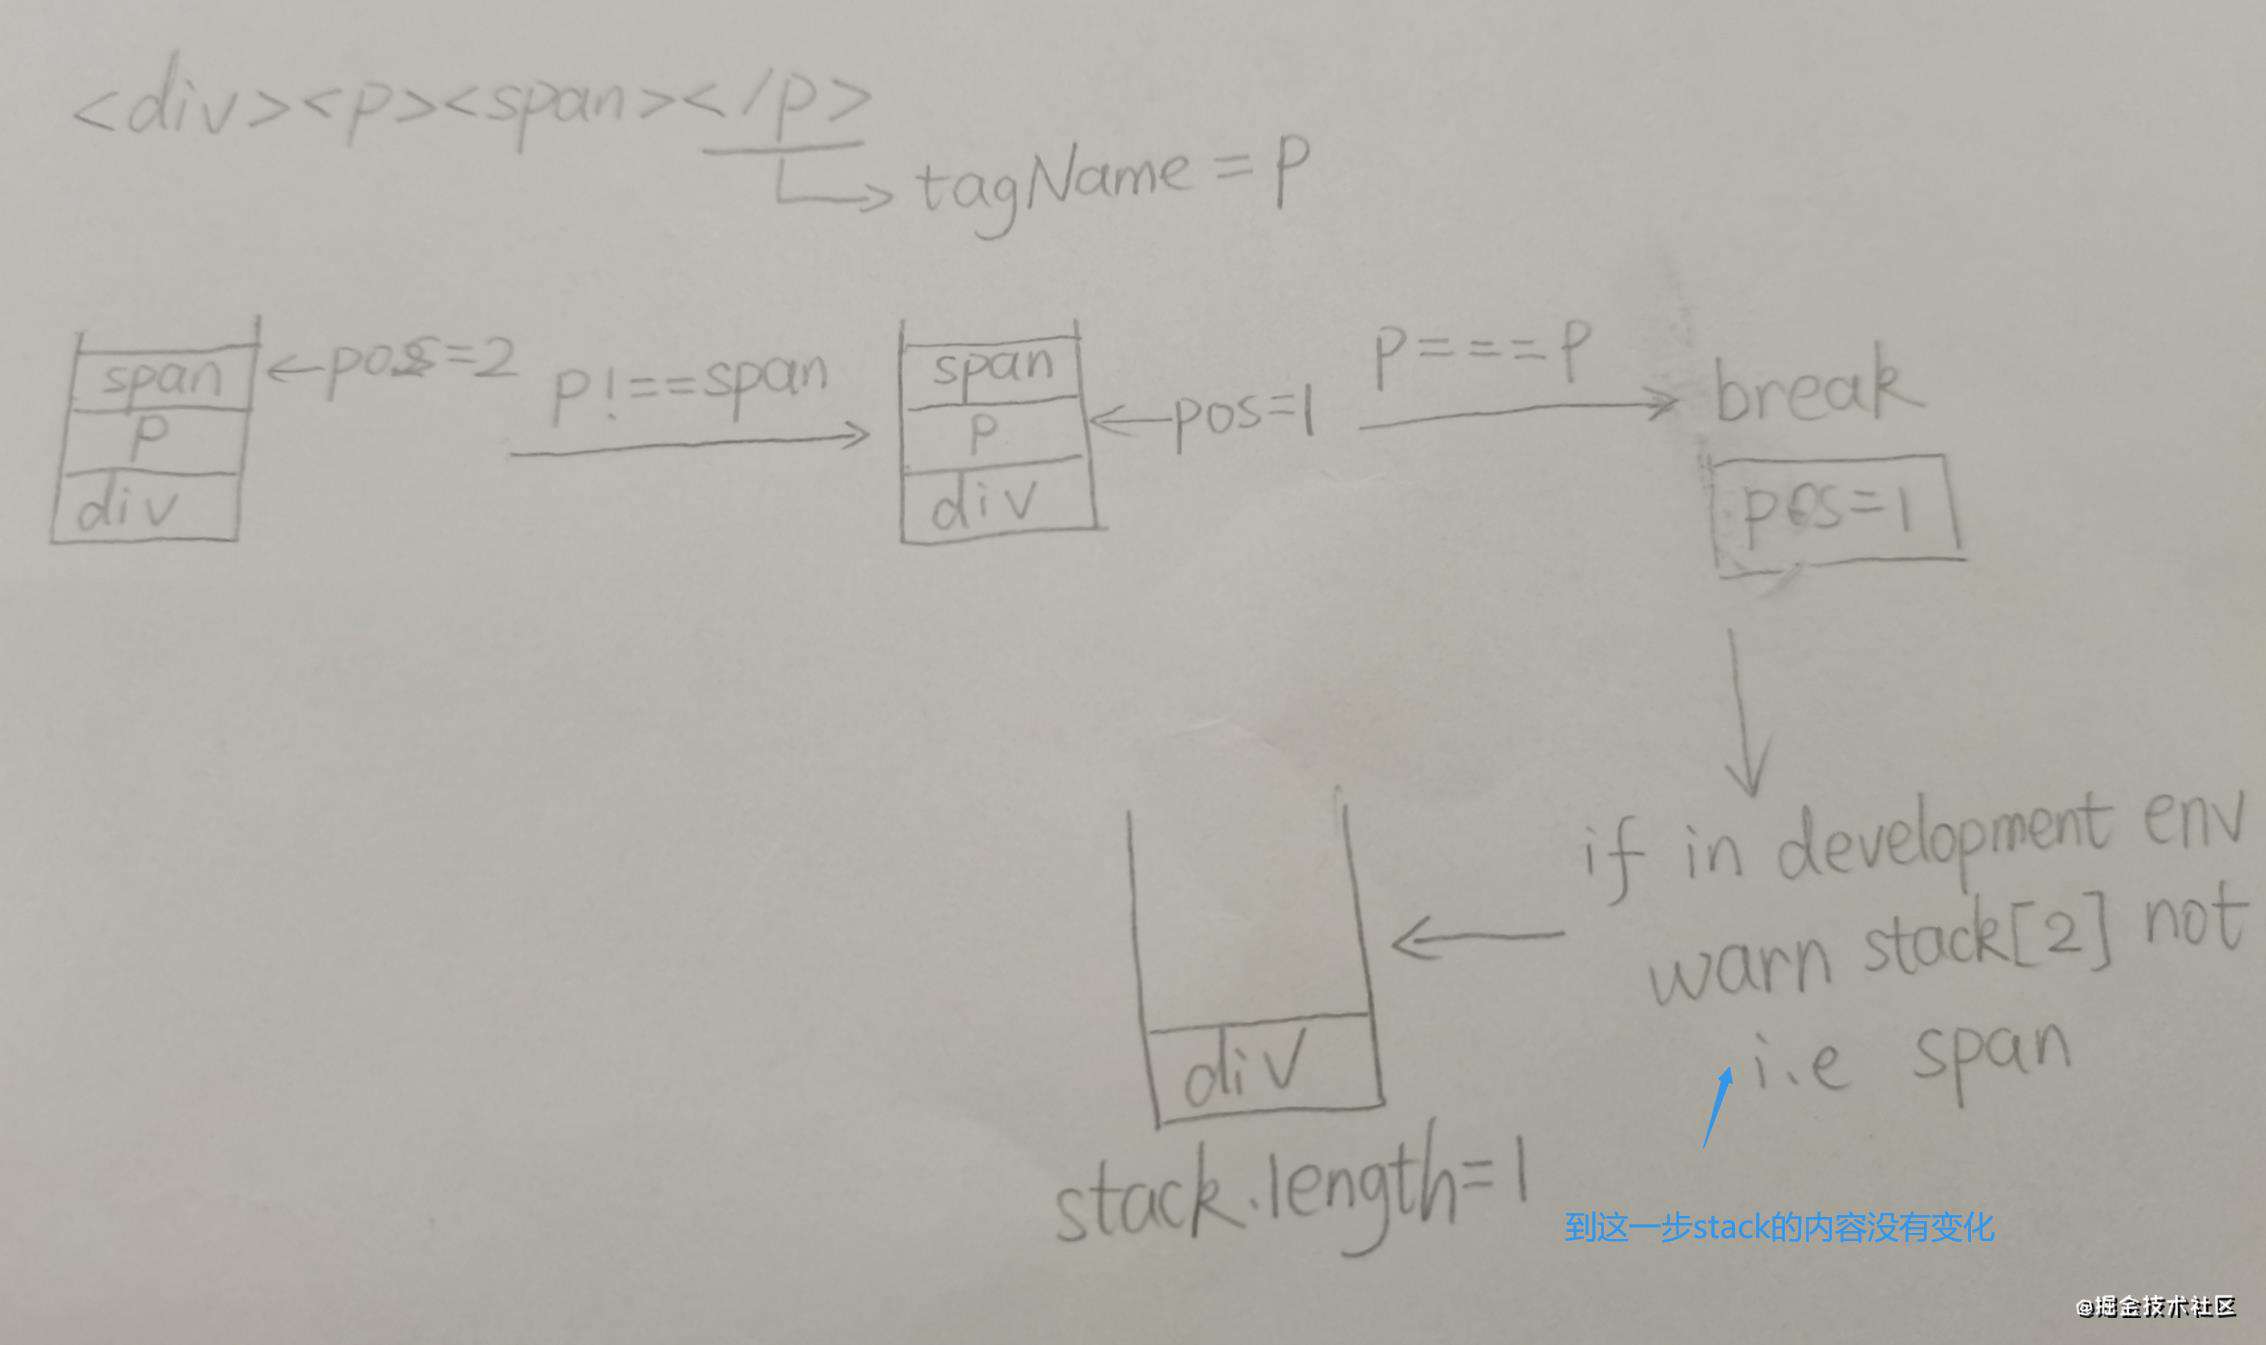 <div><p><span></p>
tagName = p
span
p
div
←pos=2
p!==span
span
p
div
←pos=1
p===p
break
pos=1
if in development env
warn stack[2] not
i.e span
div
stack.length=1
到这一步stack的内容没有变化
@掘金技术社区